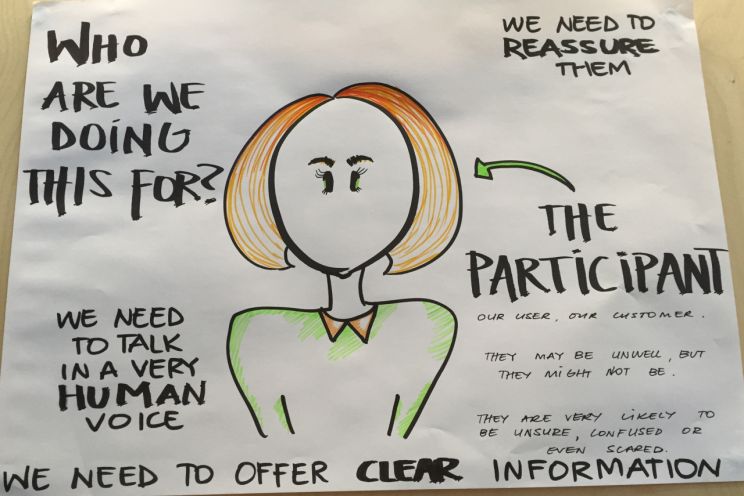 WHO
ARE WE
DOING
THIS FOR?
WE NEED TO
REASSURE
THEM
THE
PARTICIPANT
OUR USER, OUR CUSTOMER.
THEY MAY BE UNWELL, BUT
THEY MIGHT NOT BE.
THEY ARE VERY LIKELY TO
BE UNSURE, CONFUSED OR
EVEN SCARED.
WE NEED
TO TALK
IN A VERY
HUMAN
VOICE
WE NEED TO OFFER CLEAR INFORMATION